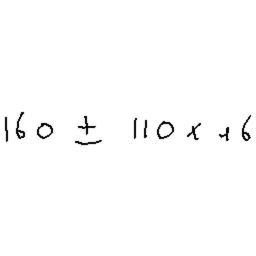 160 ± 110 x 16